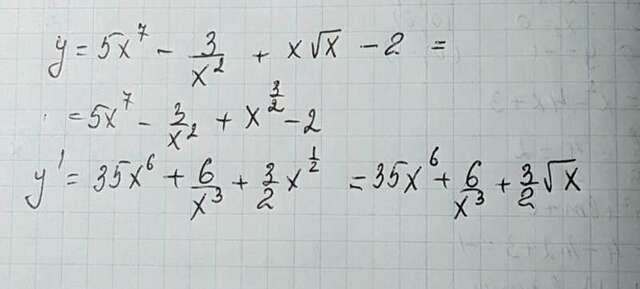 y = 5x⁷ - 3/x² + x√x - 2 =
= 5x⁷ - 3/x² + x^(3/2) - 2
y' = 35x⁶ + 6/x³ + 3/2 x^(1/2) = 35x⁶ + 6/x³ + 3/2 √x